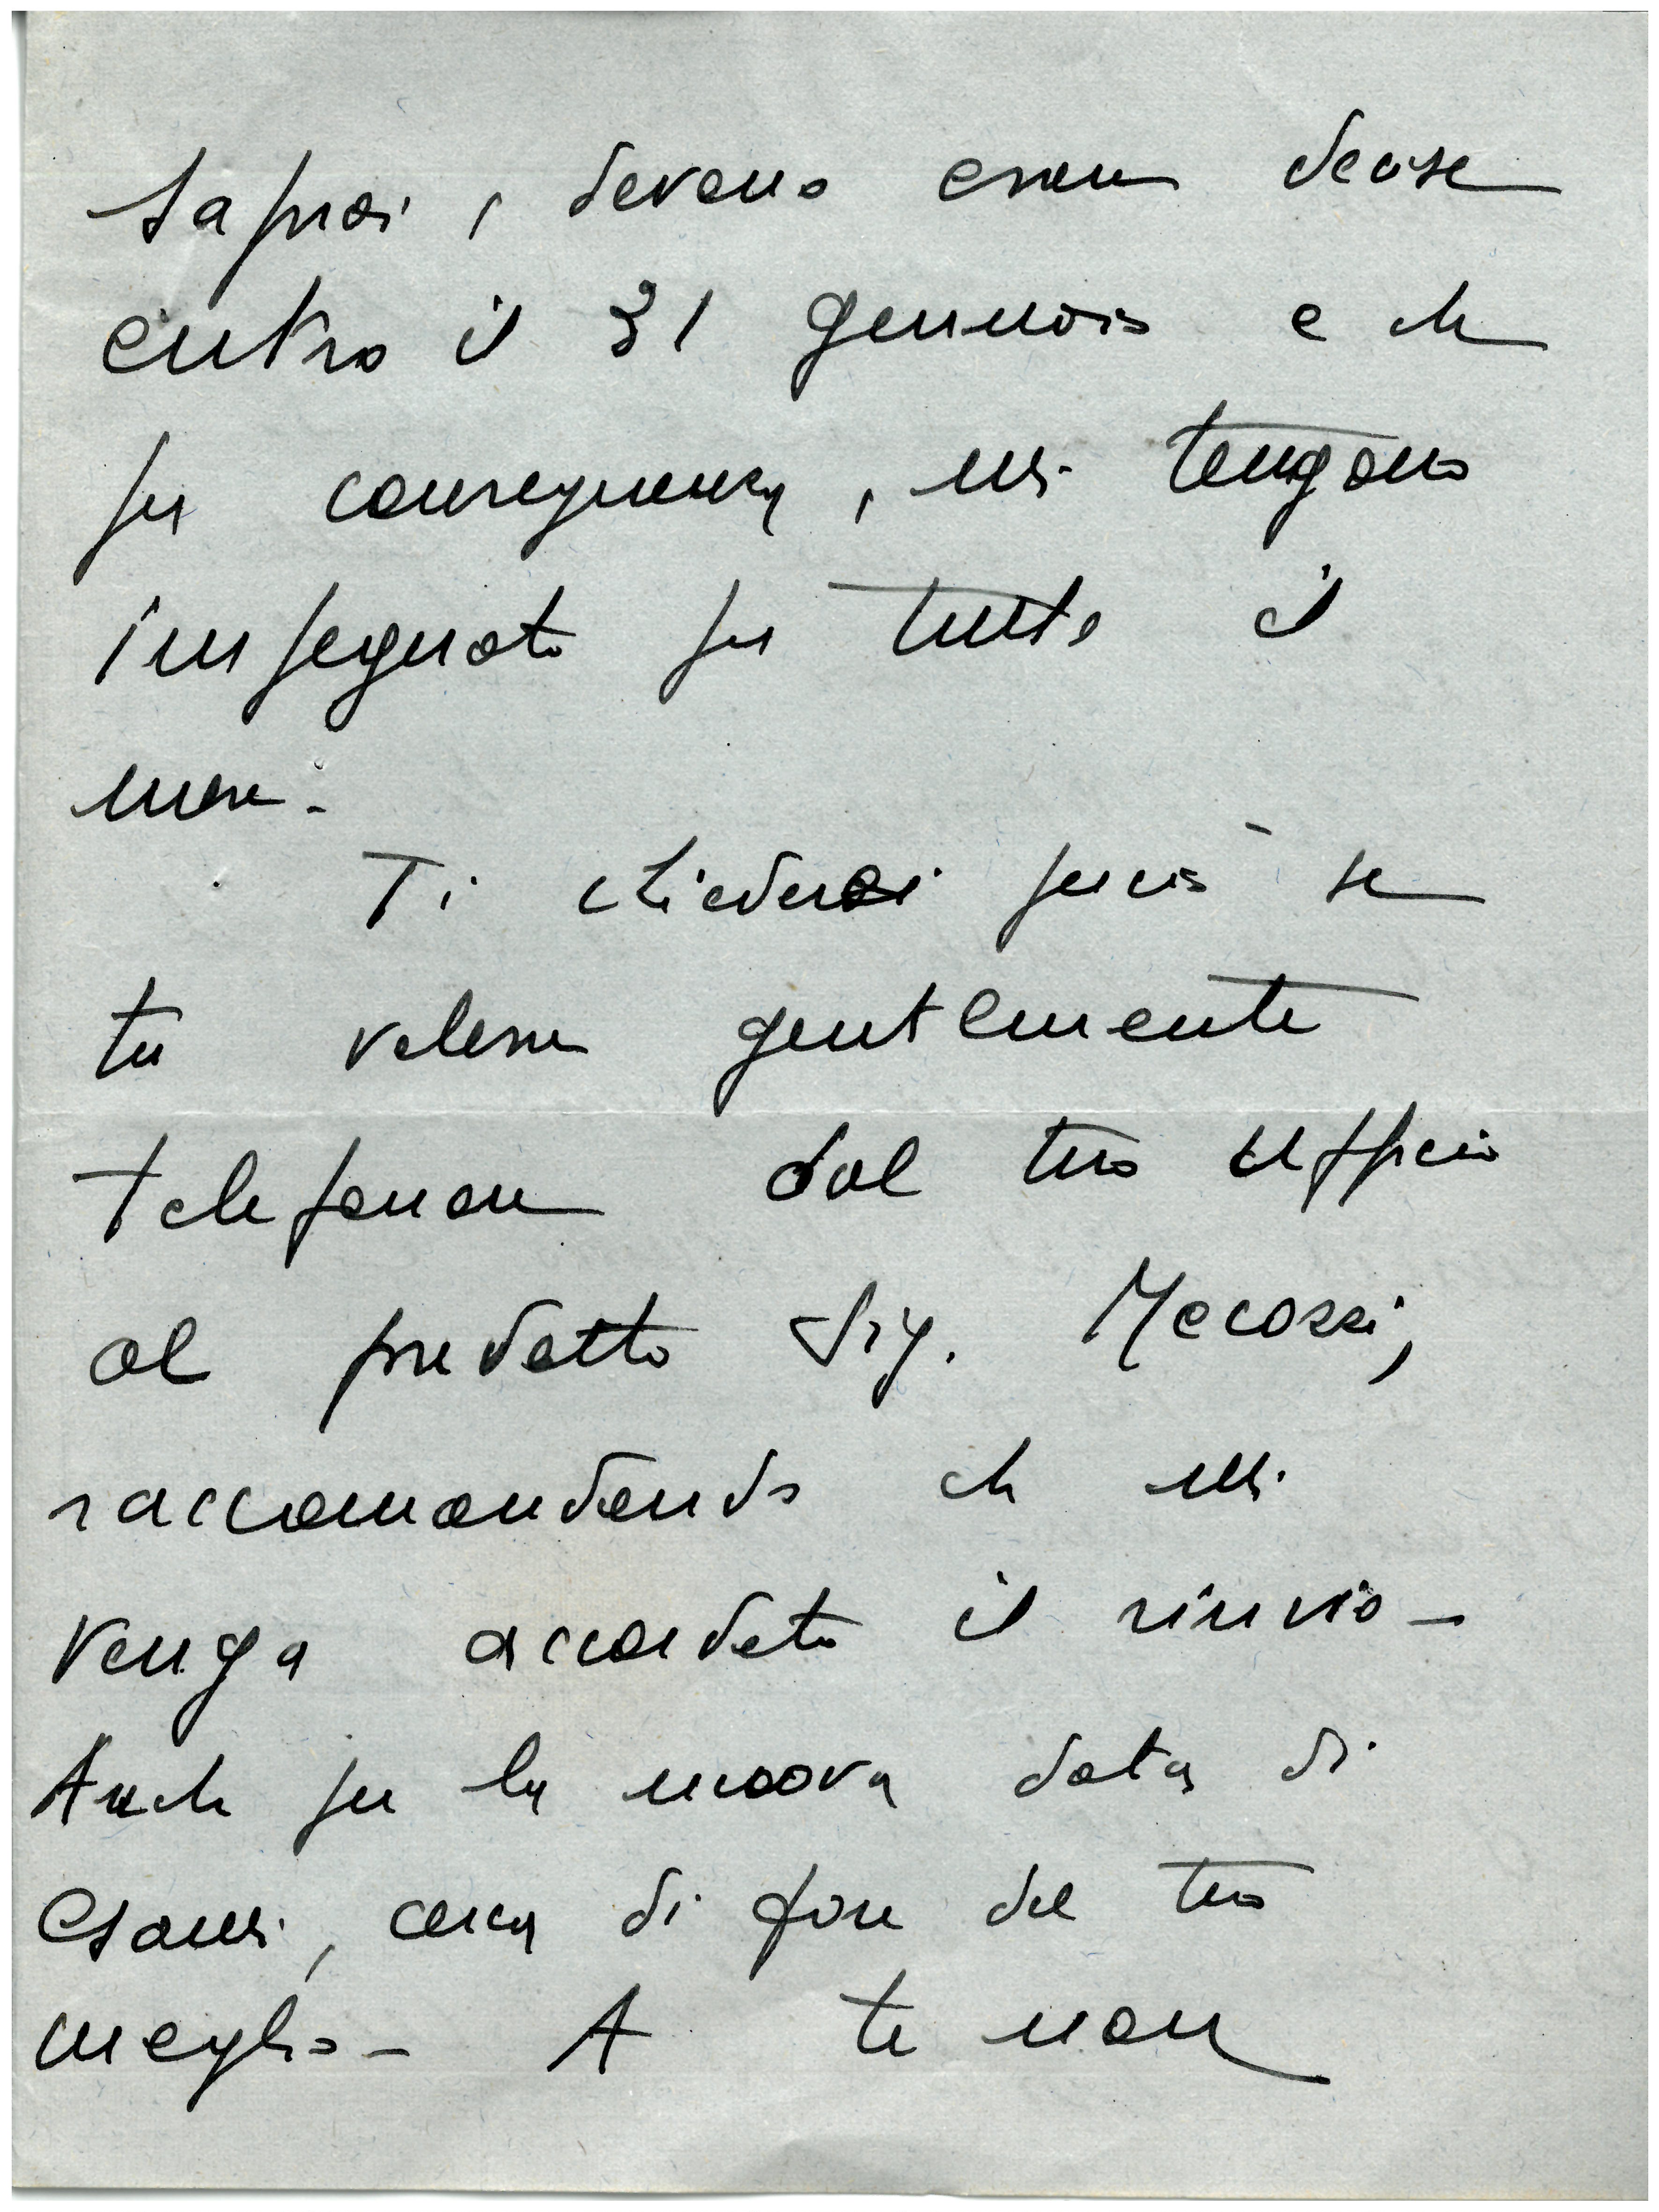 saprai, devono essere decise
entro il 31 gennaio e che
per conseguenza, mi tengono
impegnato per tutto il
mese.
Ti chiederei perciò se
tu volessi gentilmente
telefonare dal tuo ufficio
al predetto Sig. Mecozzi,
raccomandando che mi
venga accordato il rinvio -
Anche per la nuova data di
esami, cerca di fare del tuo
meglio - A te non